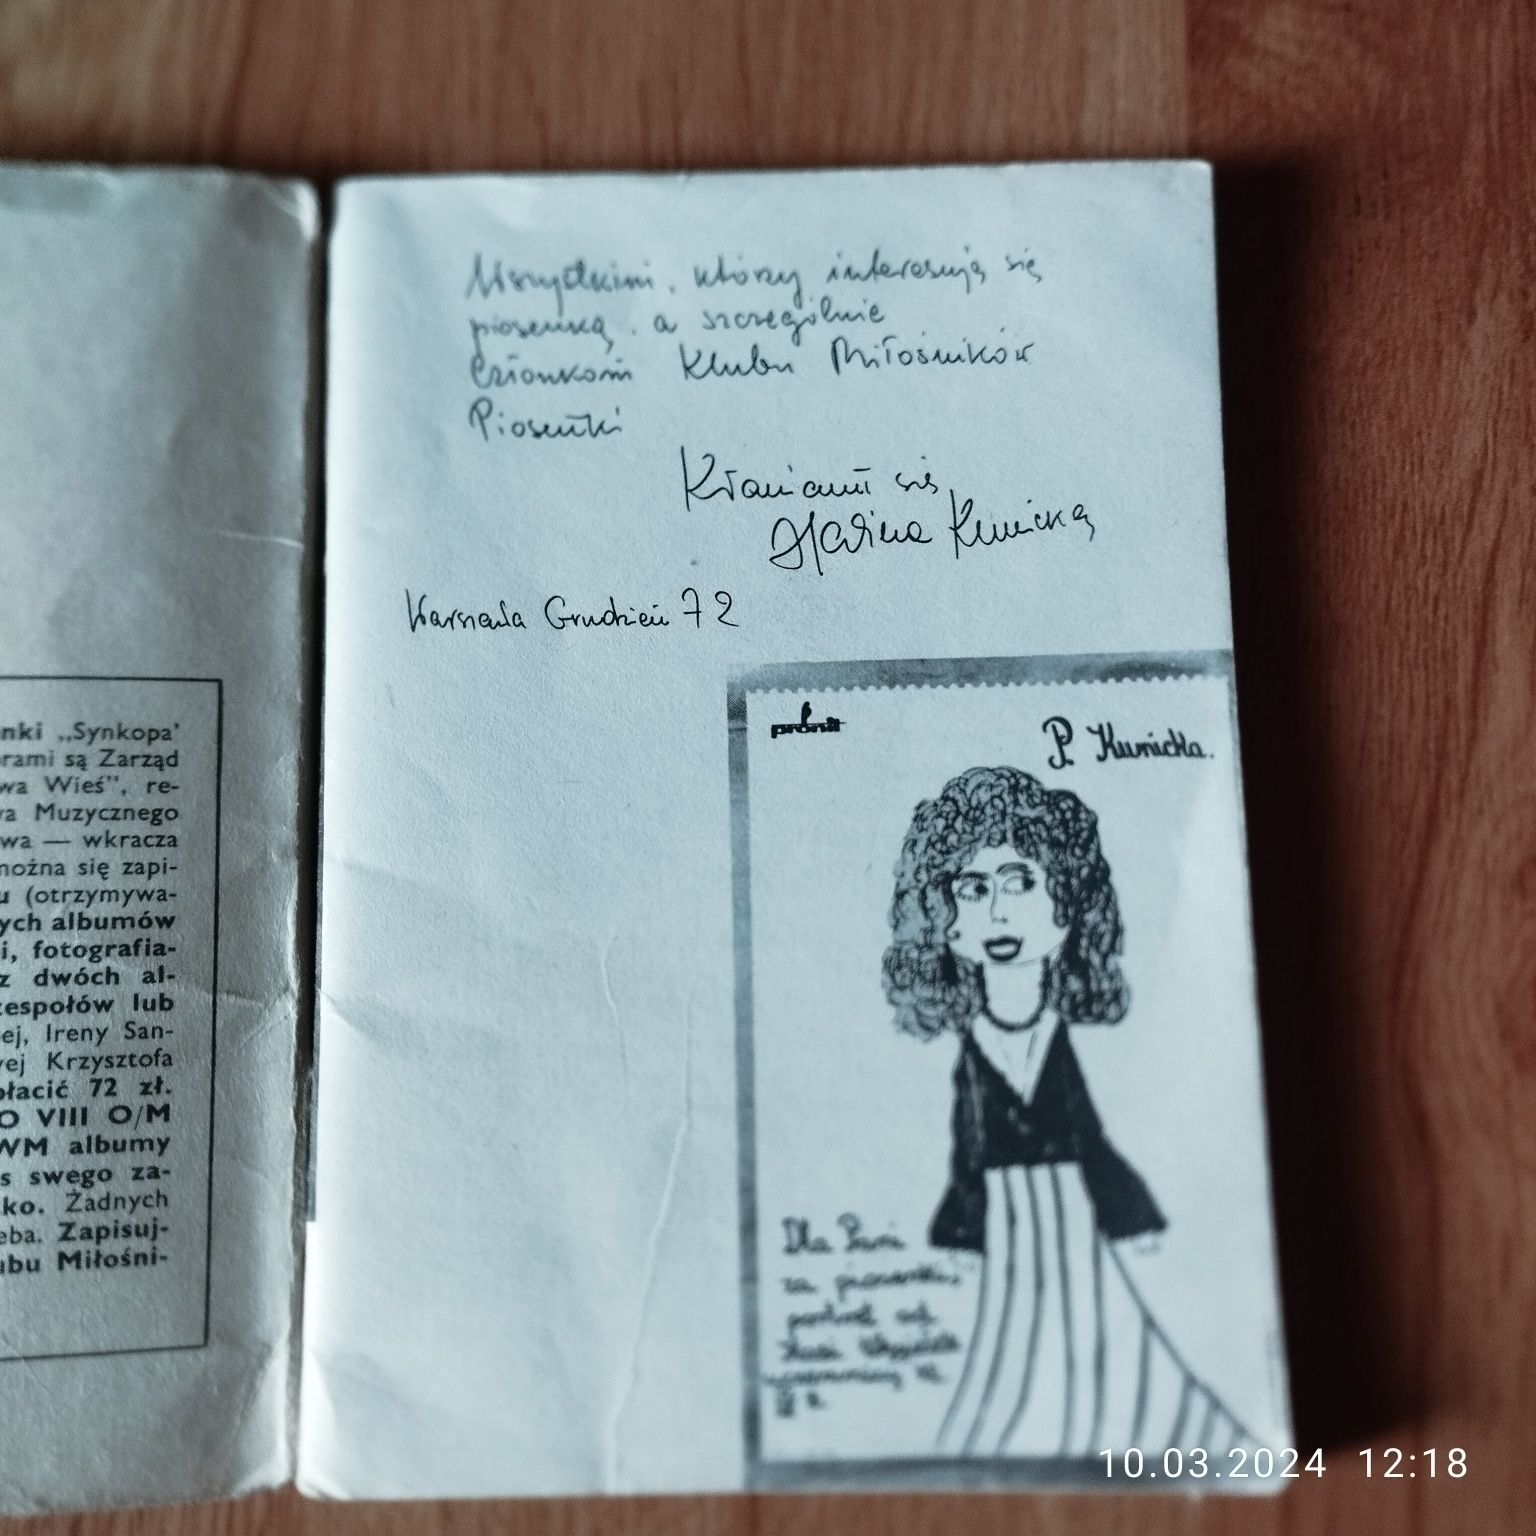 nki „Synkopa'
rami są Zarząd
wa Wieś”, re-
a Muzycznego
wa — wkracza
można się zapi-
u (otrzymywa-
ych albumów
i, fotografia-
z dwóch al-
zespołów lub
ej, Ireny San-
ej Krzysztofa
płacić 72 zł.
O VIII O/M
WM albumy
s swego za-
ko. Żadnych
eba. Zapisuj-
ubu Miłośni-
Wszystkim, którzy interesują się
piosenką, a szczególnie
członkom Klubu Miłośników
Piosenki
Kłaniam się
Halina Kunicka
Warszawa Grudzień 72
pronit
P. Kunicka.
Dla Pani
za piosenki,
portret od
10.03.2024 12:18